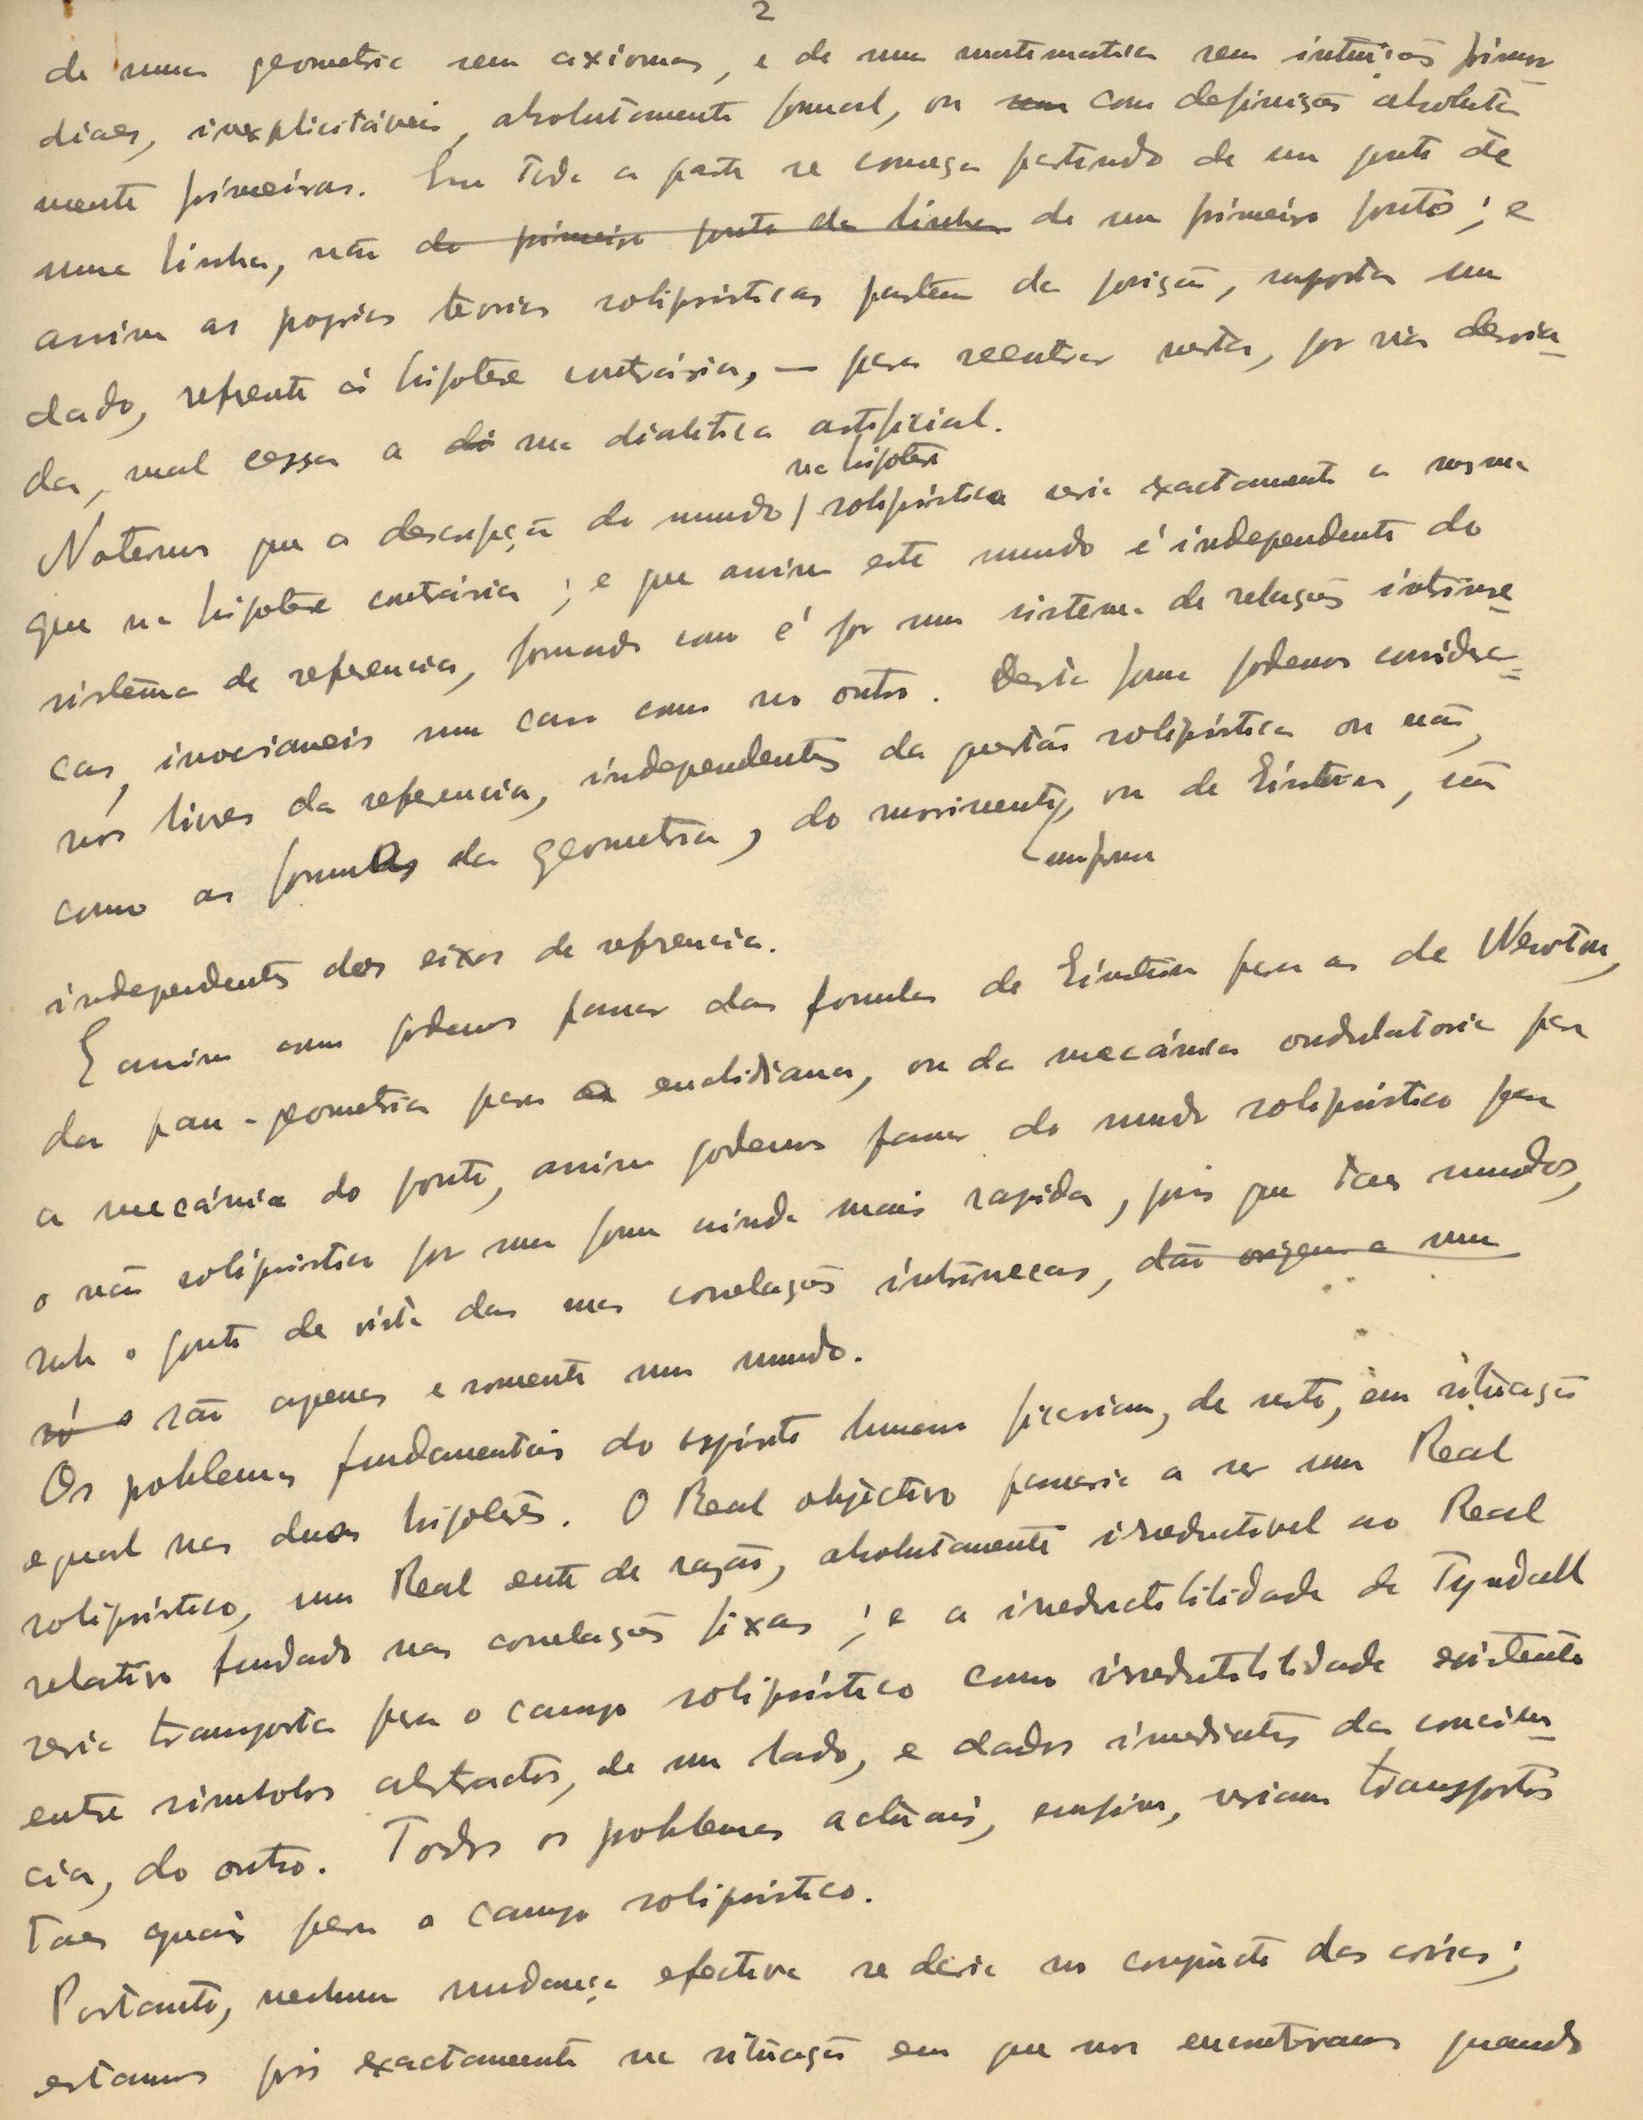 2
de uma geometria sem axiomas, e de uma matematica sem intuições primor-
diaes, inexplicitáveis, absolutamente formal, ou sem com definições absoluta
mente primeiras. Em toda a parte se começa partindo de um ponto de
uma linha, não do primeiro ponto da linha de um primeiro ponto; e
assim as proprias teorias solipsisticas partem da posição, suposta um
dado, referente á hipotese contrária, — para reentrar nesta, por via desvia-
da, mal cessa a di sua dialetica artificial.
na hipotese
Notemos que a descripção do mundo / solipsistica seria exactamente a mesma
que na hipotese contrária; e que assim este mundo é independente do
sistema de referencia, formado como é por um sistema de relações intrinse-
cas, invariaveis num caso como no outro. Desta forma podemos considerar-
nos livres da referencia, independentes da questão solipsistica ou não,
como as formulas da geometria, do movimento, ou de Einstein, são
uniforme
independentes dos eixos de referencia.
E assim como podemos passar das formulas de Einstein para as de Newton,
da pan-geometria para a euclidiana, ou da mecánica ondulatoria para
a mecánica do ponto, assim podemos passar do mundo solipsistico para
o não solipsistico por uma forma ainda mais rapida, pois que taes mundos,
sob o ponto de vista das suas correlações intrinsecas, dão origem a um
só o são apenas e somente um mundo.
Os problemas fundamentais do espirito humano ficariam, de resto, em situação
egual nas duas hipoteses. O Real objectivo passaria a ser um Real
solipsistico, um Real ente de razão, absolutamente irreductivel ao Real
relativo fundado nas correlações fixas; e a irreductibilidade de Tyndall
seria transposta para o campo solipsistico como irredutibilidade existente
entre simbolos abstractos, de um lado, e dados imediatos da conciên-
cia, do outro. Todos os problemas actuais, emfim, seriam transpostos
taes quais para o campo solipsistico.
Portanto, nenhuma mudança efectiva se daria no conjuncto das coisas;
estamos pois exactamente na situação em que nos encontramos quando